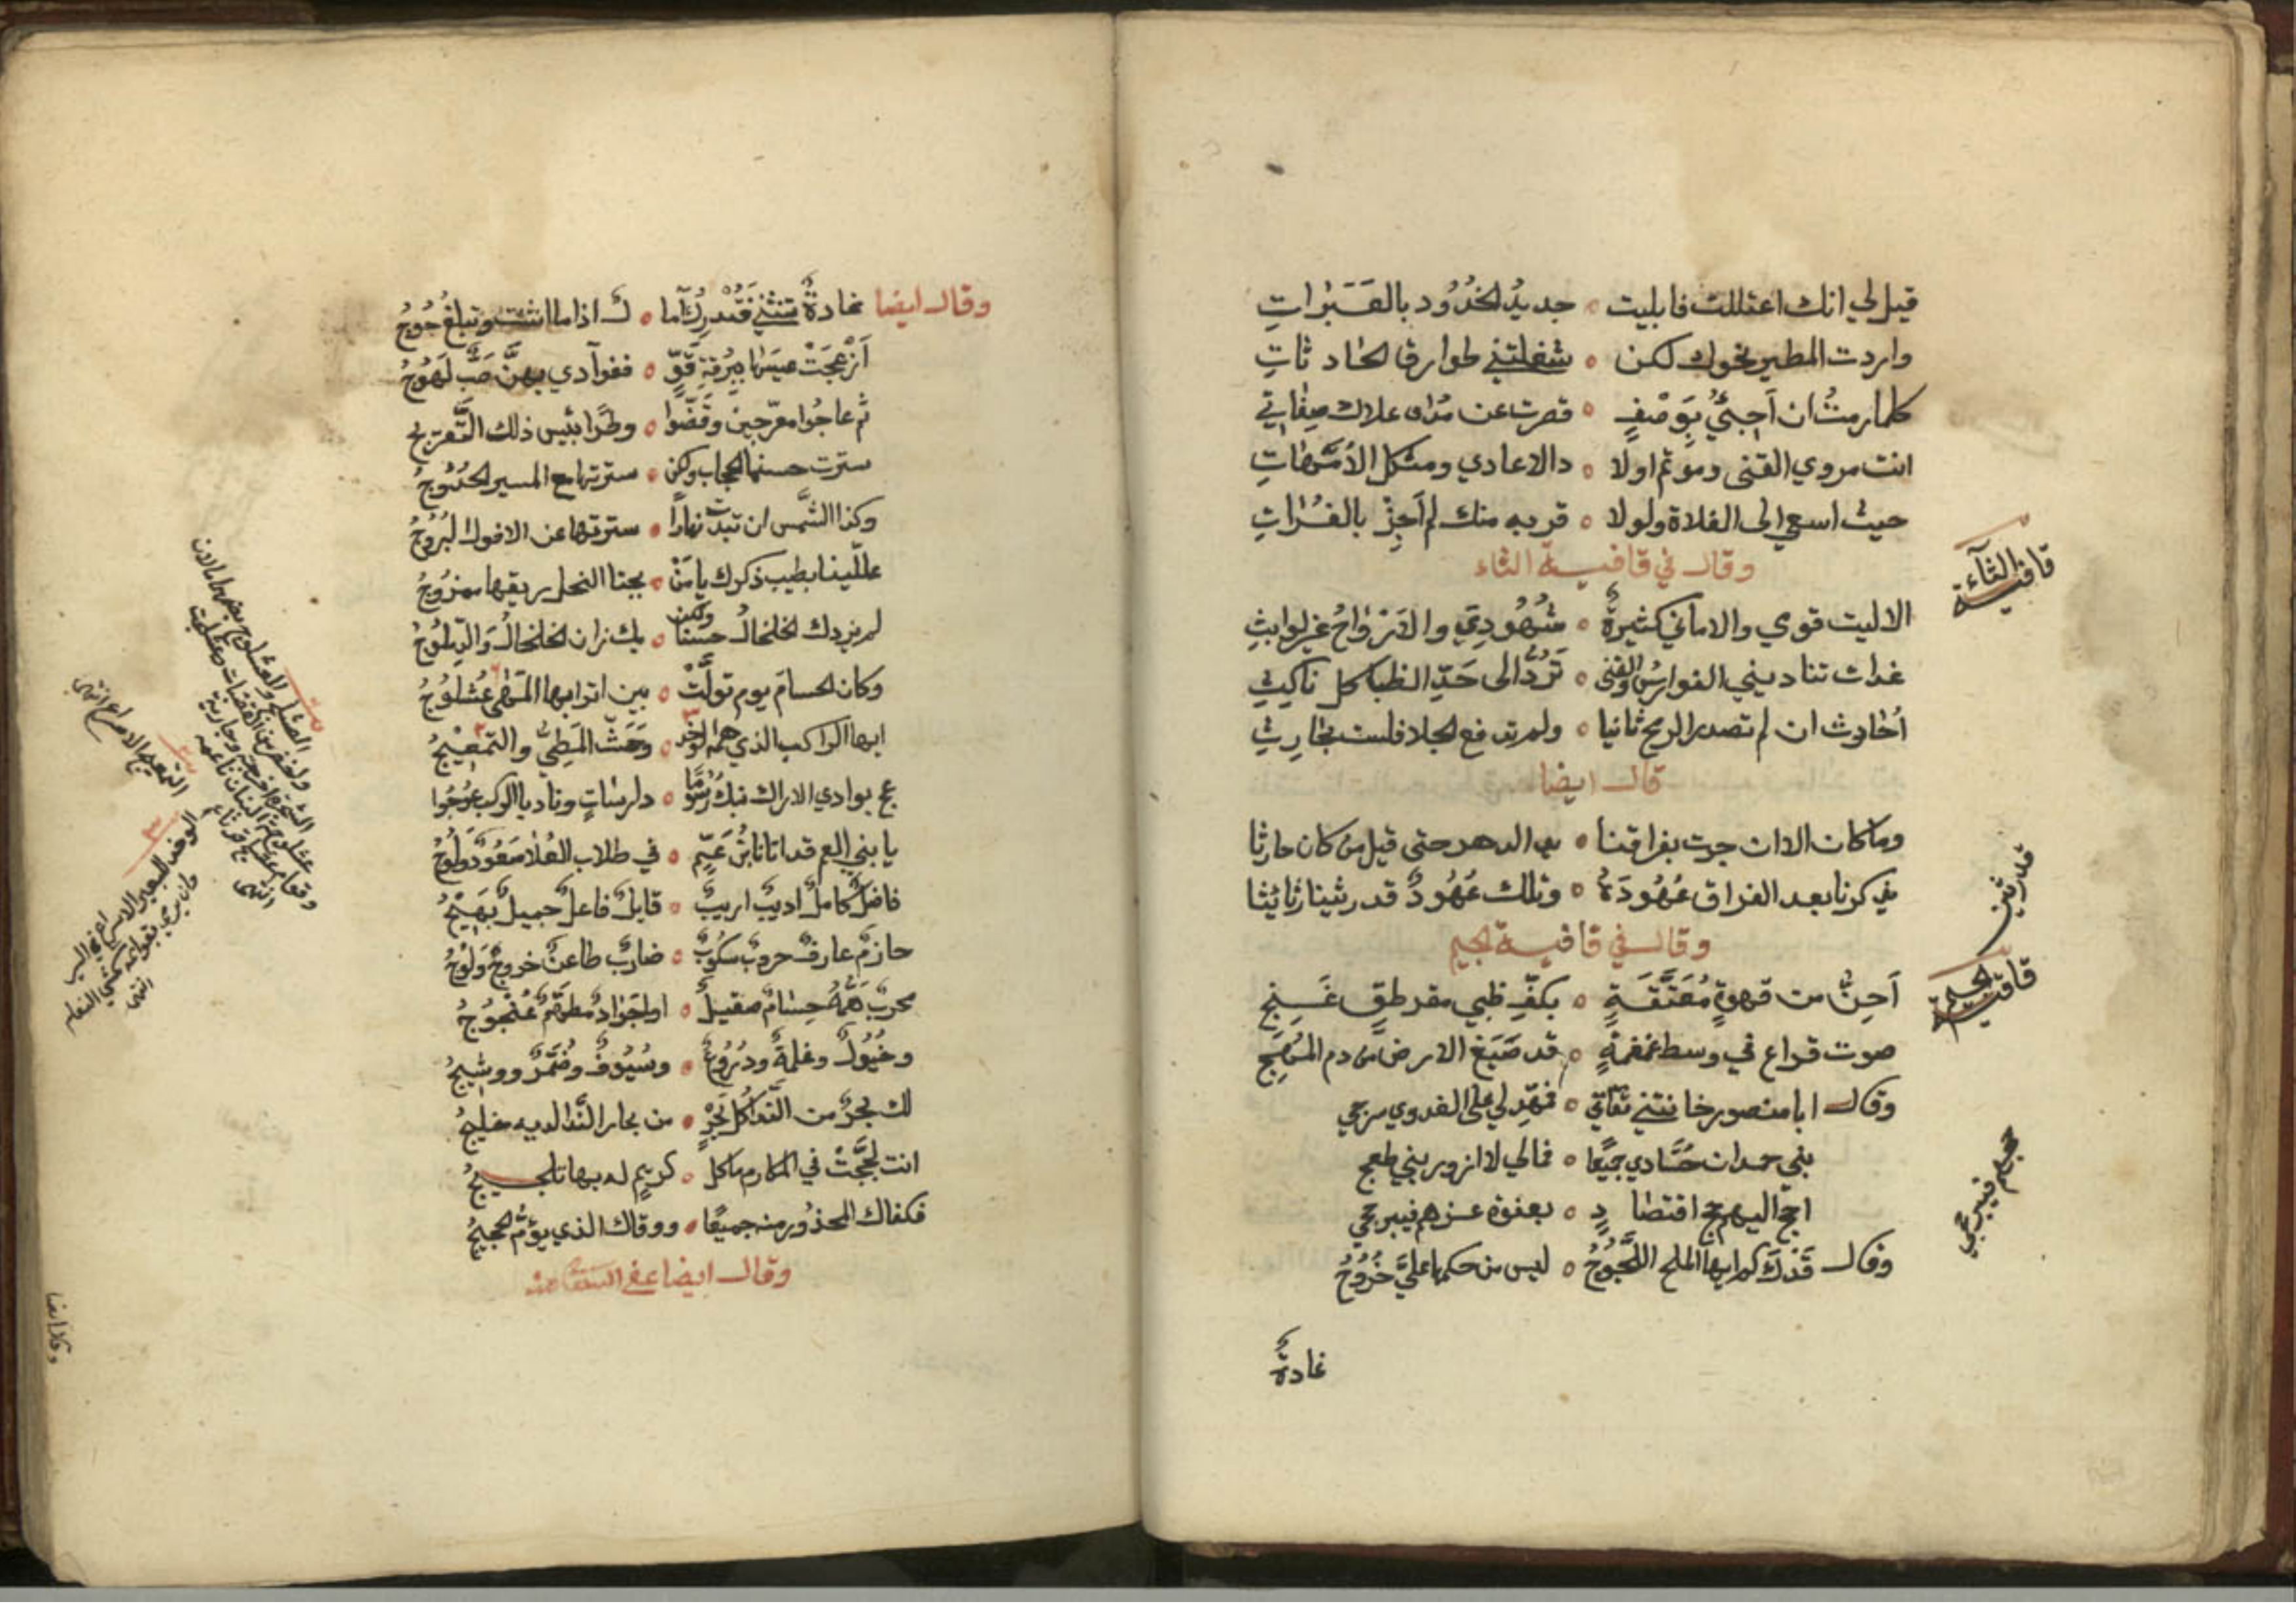 قيل لي انك اعتللت فابليت ۰ جديدُ الخدُود بالعَبَراتِ
واردت المطير نحوك لكن ۰ شغلتني طوارق الحادثاتِ
كلما رمتُ ان اَجئيُ بوَصْفٍ ۰ قصرت عن مدى علاك صفاتي
انت مروي القنى وموتم اولا ۰ د الاعادي ومثكل الاُمّهاتِ
حيث اسعى الى الفلاة ولولا ۰ قربه منك لم اَجِزْ بالفُراتِ
وقال في قافية الثاء
قافية الثآء
الا ليت قوي والاماني كثيرةٌ ۰ شهُودِيَ والارْواحُ غير لوابثِ
غداة تناديني الفوارسُ والقنى ۰ تَردُّ الى حَدِّ الظبا كل ناكثِ
اَحَارث ان لم تصدر الرمح ثانيا ۰ ولم تدفع الجلا فلست بحارِثِ
قال ايضا
وما كان الا ان جرت بفراقنا ۰ يد الدهر حتى قيل من كان حارثا
يذكرنا بعد الفراق عُهُودَهُ ۰ وتلك عُهُودٌ قد رثينا رثايثا
وقال في قافية الجيم
قافية الجيم
اَحِنُّ من قهوةٍ مُعَتَّقَةٍ ۰ بكفِّ ظبي مقرطقٍ غَنِجِ
صوت قراع في وسط غمغمةٍ ۰ قد صَبَغ الارض من دم المُهَجِ
وقال ابا منصور خانتني ثقاتي ۰ فهّد لي على الفدوي سرجي
بني حمدان حُسَّادي جميعًا ۰ فمالي لا ازور بني طعج
احج اليهم حج اقتصادٍ ۰ بعفوة عزهم فيبرحجي
حجهم فيبرحجي
وقال قَدْكَ كم ايها الملح اللَّجُوجُ ۰ ليس من حكمها عليَّ خُرُوجُ
غادةٌ
وقال ايضا غادةٌ تنثني فتُدْرِكُ آما ۰ لك اذا ما انثنت وتبلغُ حُوجُ
اَزْعجَتْ عيسَها ببُرقةِ قَوٍّ ۰ ففوآدي بهنَّ صَبٌّ لَهُوجُ
ثم عاجُوا معرّجين وقَضَّوا ۰ وطرًا بئيس ذلك التَّعريج
سترت حسنها الحجاب ولكن ۰ سترتها مع المسير الحُدُوجُ
وكذا الشَّمس ان تبدّت نهارًا ۰ سترتها عن الافول البُرُوجُ
علّلينا بطيب ذكرك يا مَنْ ۰ بجنا النحل ريقها ممزوجُ
لم يزدك الخلخالُ حسنًا ولكن ۰ بك زان الخلخالُ والدِّملوُجُ
وكان الحسامَ يوم تولَّتْ ۰ بين اترابها المَهَى عُسْلُوُجُ
ايها الراكب الذي همه الوخد ۰ وحَثّ المَطِيُّ والتمعيْجُ
عج بوادي الاراك نبك رُسُومًا ۰ دارساتٍ وناديا الركب عُوجُوا
يا بني العم قد اتانا بْنُ عَمٍّ ۰ في طلاب العُلا صَعُودٌ دلُوجُ
فاضلٌ كاملٌ اديبٌ اريبٌ ۰ قايلٌ فاعلٌ جميلٌ بَهيْجُ
حازمٌ عارفٌ حروبٌ سكوُبٌ ۰ ضاربٌ طاعنٌ خروجٌ وَلُوْجُ
محربٌ هَمُّهُ حسامٌ صقيلٌ ۰ او جَوادٌ مطهّمٌ عُنْجُوجُ
وخيُولٌ وغلمةٌ ودرُوعٌ ۰ وسُيُوفٌ وضُمَّرٌ ووشيجُ
لك بحرٌ من الندَا كلُّ بَحْرٍ ۰ من بحار النَّدا لديه خليجُ
انت لجَّجْتَ في المكارم ما كل ۰ كريمٍ له بها تلجيجُ
فكفاك المحذُور منه جميعًا ۰ ووقاك الذي يوُمُّ الحجيجُ
وقال ايضا عفى الله عنه
التمعج الاسراع انتهى